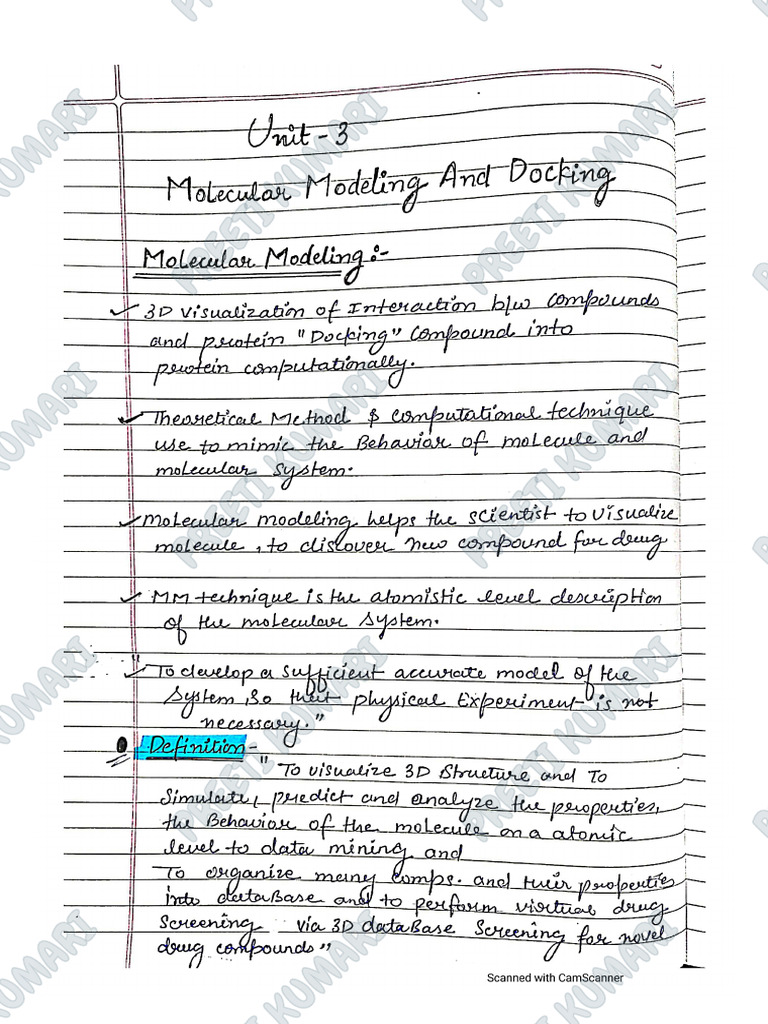 Unit - 3
Molecular Modeling And Docking
Molecular Modeling :-
✓ 3D visualization of Interaction b/w compounds
and protein "Docking" compound into
protein computationally.
✓ Theoretical Method & computational technique
use to mimic the Behavior of molecule and
molecular system.
✓ Molecular modeling helps the scientist to visualize
molecule, to discover new compound for drug
✓ MM technique is the atomistic level description
of the molecular system.
"
✓ To develop a sufficient accurate model of the
system, so that physical Experiment is not
necessary."
Definition -
" To visualize 3D structure and To
Simulate, predict and analyze the properties,
the Behavior of the molecule on a atomic
level to data mining and
To organize many comps. and their properties
into dataBase and to perform virtual drug
Screening via 3D dataBase Screening for novel
drug compounds"
Scanned with CamScanner
PREETI KUMARI